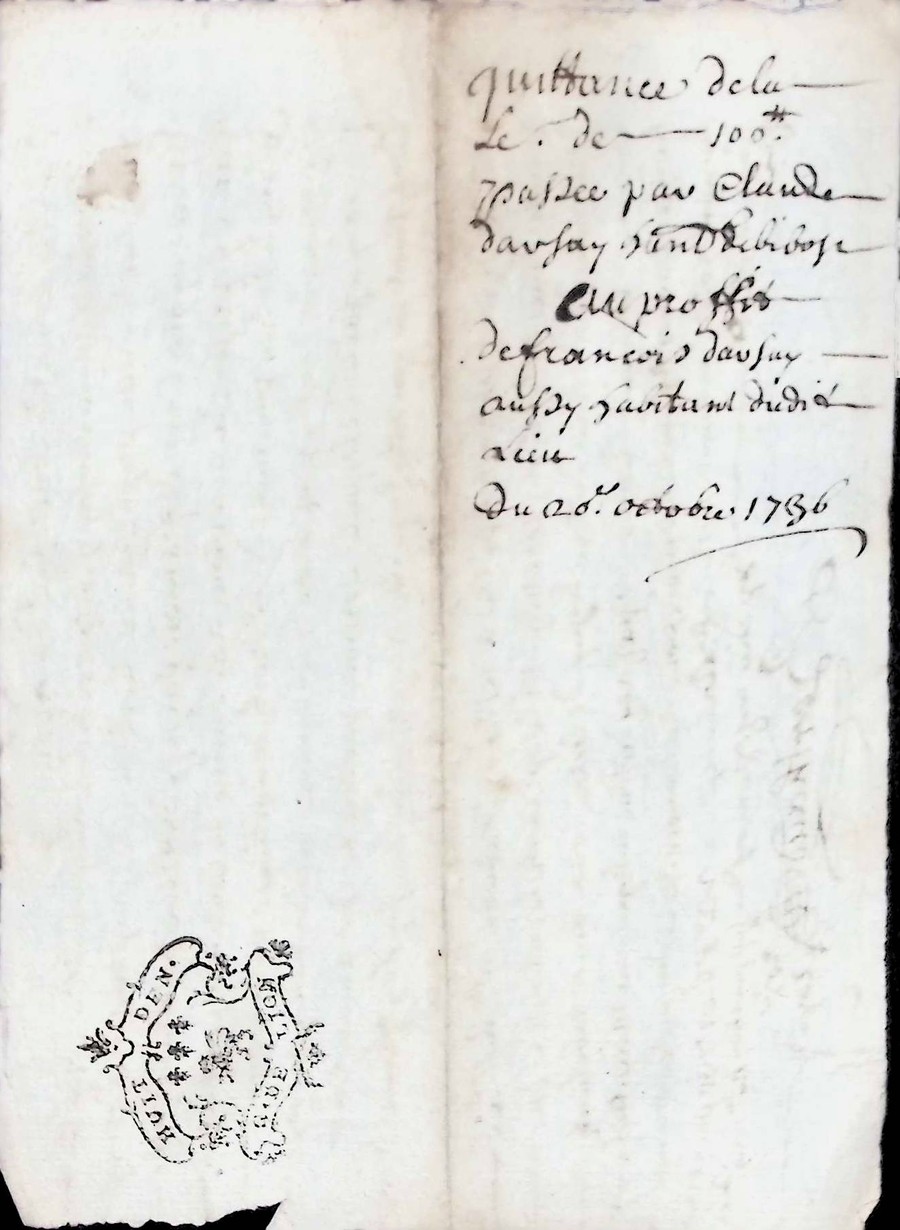 quittance dela
Le . de 100₶.
passee par Claude
davsay
au proffit
de francois davsay
aussy habitant dudit
Lieu
Du 26e. octobre 1736
HUIT DEN.
G. DE LION